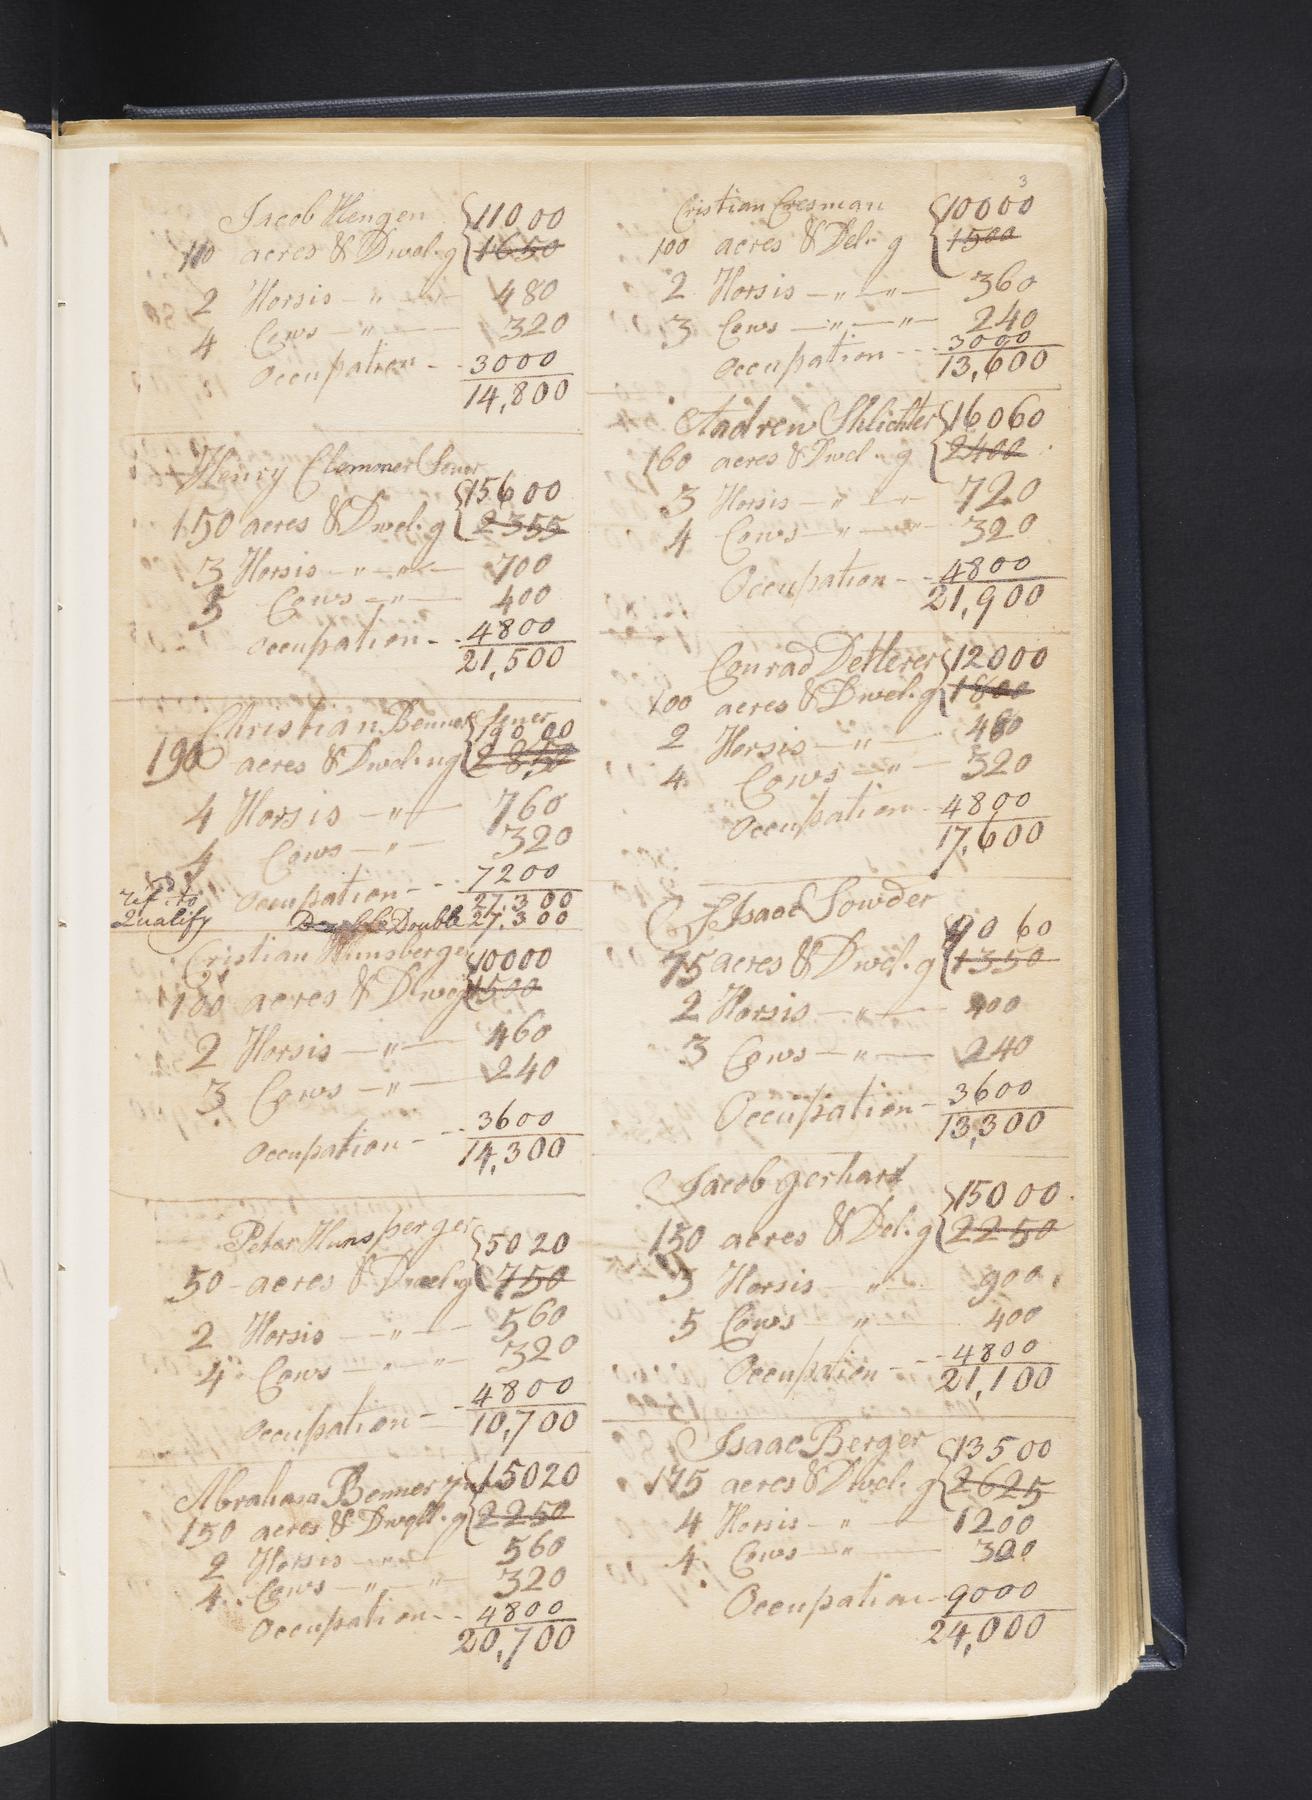 3
Jacob Hengen {11000
110 acres & Dwel.g {1650
2 Horsis — " — 480
4 Cows — " — 320
Occupation - - 3000
14,800
Henry Clemmer Sener
{15600
150 acres & Dwel.g {2355
3 Horsis — " — " — 700
5 Cows — " — 400
Occupation - - 4800
21,500
Christian Benner Sener
{19000
190 acres & Dwel.ng {2850
4 Horsis — " — 760
4 Cows — " — 320
Occupation - - 7200
27,300
ref.d to
Qualify Double 27,300
Cristian Hunsberger {10000
100 acres & Dlweg {1500
2 Horsis — " — 460
3 Cows — " — 240
Occupation - - 3600
14,300
Peter Hunsperger {5020
50 - acres & Dwel.g {750
2 Horsis — " — 560
4 Cows — " — " — 320
Occupation - - 4800
10,700
Abraham Benner {15020
150 acres & Dwell.g {2250
2 Horsis — " — 560
4 Cows — " — " 320
Occupation - - 4800
20,700
Cristian Cresman {10000
100 acres & Del.g {1500
2 Horsis — " — " — 360
3 Cows — " — " — 240
Occupation - - 3000
13,600
Andrew Shlichter {16060
160 acres & Dwel.g {2400
3 Horsis — " — 720
4 Cows — " — " 320
Occupation - - 4800
21,900
Conrad Detterer {12000
100 acres & Dwel.g {1800
2 Horsis — " — 480
4 Cows — " — 320
Occupation - 4800
17,600
Isaac Sowder
{9060
75 acres & Dwel.g {1350
2 Horsis — " — 400
3 Cows — " — 240
Occupation - 3600
13,300
Jacob gerhart
{15000
150 acres & Del.g {2250
3 Horsis — " — 900
5 Cows " — 400
Occupation - - 4800
21,100
Isaac Berger {13500
175 acres & Dwel.g {2625
4 Horsis — " — 1200
4 Cows — " — 300
Occupation - 9000
24,000